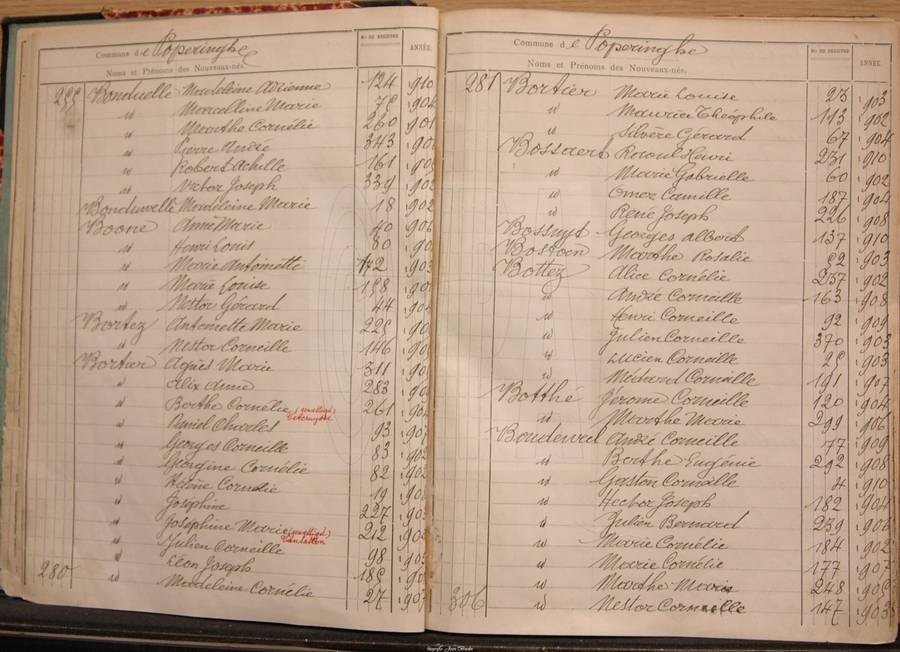 Commune de Poperinghe
Noms et Prénoms des Nouveaux-nés.
No DU REGISTRE
ANNÉE.
255 Bonduelle Madeleine Adrienne 124 910
id Marcelline Marie 75 90
id Marthe Cornélie 260 901
id Pierre André 343 90
id Robert Achille 161 90
id Victor Joseph 339 90
Bonduwelle Madeleine Marie 18 902
Boone Anna Marie 40 90
id Henri Louis 80 90
id Marie Antoinette 142 90
id Marie Louise 158 90
id Nestor Gérard 44 90
Bortez Antoinette Marie 225 90
id Nestor Corneille 146 90
Bortier Agnès Marie 311 90
id Alix Anna 283 90
id Berthe Cornélie 261 90
id Amiel Charles 93 90
id Georges Corneille 83 90
id Georgine Cornélie 82 90
id Hélène Cornélie 19 90
id Joséphine 227 90
id Joséphine Marie 212 90
id Julien Corneille 98 90
id Léon Joseph 185 90
280 id Madeleine Cornélie 27 90
Commune de Poperinghe
Noms et Prénoms des Nouveaux-nés.
No DU REGISTRE
ANNÉE.
281 Bortier Marie Louise 23 903
id Maurice Théophile 113 902
id Silvère Gérard 67 904
Bossaert Raoul Henri 231 910
id Marie Gabrielle 60 902
id Omer Camille 187 904
id René Joseph 226 908
Bossuyt Georges Albert 137 910
Bostoen Marthe Rosalie 52 903
Bottez Alice Cornélie 237 902
id André Corneille 163 908
id Henri Corneille 92 909
id Julien Corneille 370 903
id Lucien Corneille 25 903
id Médard Corneille 191 907
Botthé Jérome Corneille 120 904
id Marthe Marie 299 906
Boudewel André Corneille 77 909
id Berthe Eugénie 292 908
id Gaston Corneille 4 910
id Hector Joseph 182 904
id Julien Bernard 239 906
id Marie Cornélie 184 902
id Marie Cornélie 177 907
id Marthe Marie 248 90
306 id Nestor Corneille 147 903